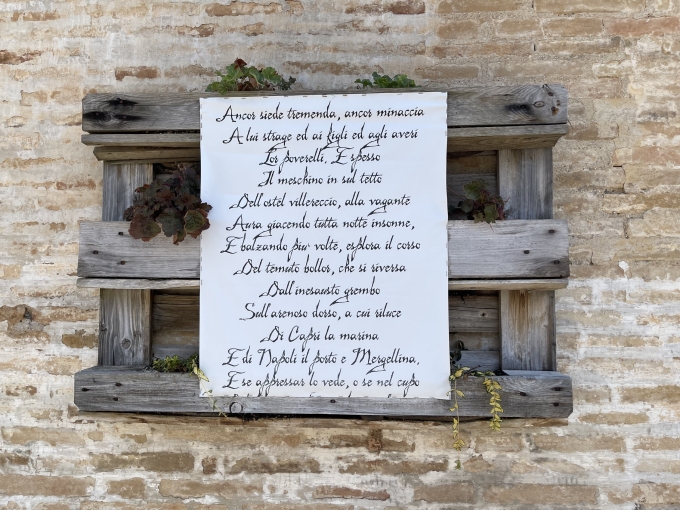 Ancor siede tremenda, ancor minaccia
A lui strage ed ai figli ed agli averi
Lor poverelli. E spesso
Il meschino in sul tetto
Dell'ostel villereccio, alla vagante
Aura giacendo tutta notte insonne,
E balzando piu' volte, esplora il corso
Del temuto bollor, che si riversa
Dall'inesausto grembo
Sull'arenoso dorso, a cui riluce
Di Capri la marina
E di Napoli il porto e Mergellina.
E se appressar lo vede, o se nel cupo